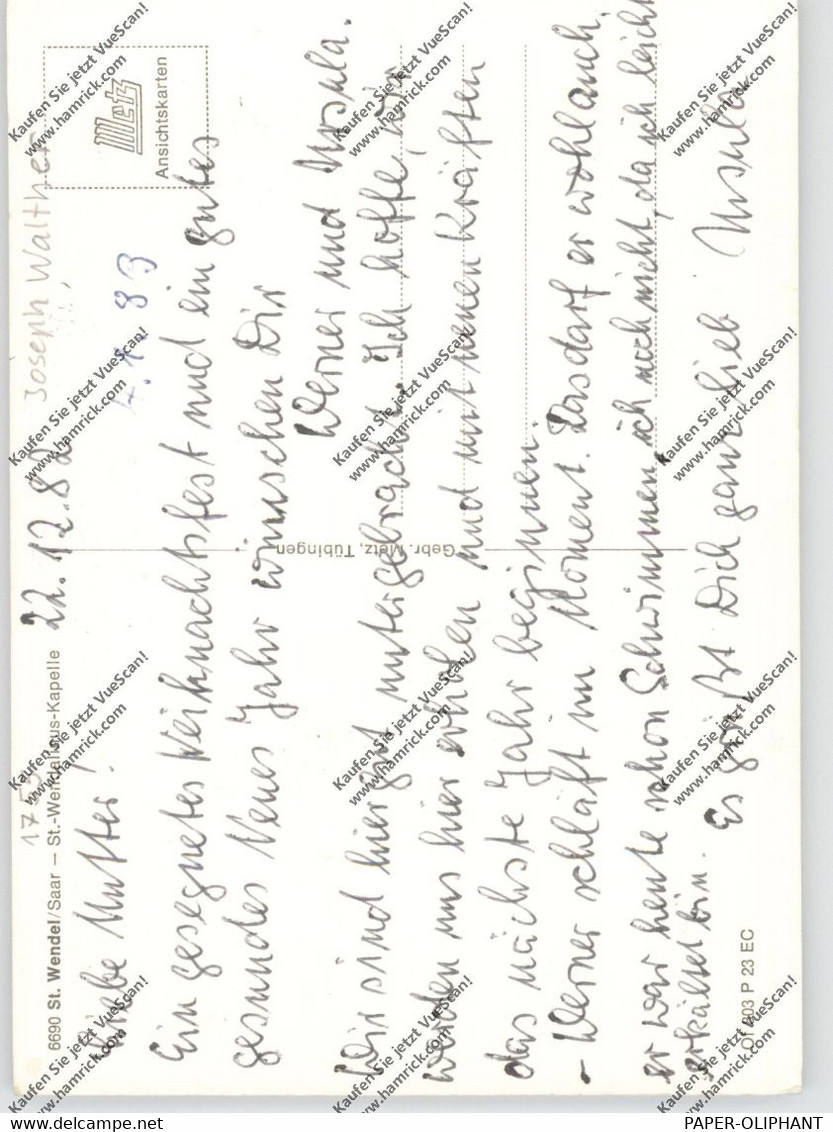 1753 Joseph Walther,
6690 St. Wendel/Saar – St.-Wendalinus-Kapelle
22.12.82
4.1.83
Metz
Ansichtskarten
Gebr. Metz, Tübingen
Liebe Mutter!
Ein gesegnetes Weihnachtsfest und ein gutes
gesundes Neues Jahr wünschen Dir
Werner und Ursula.
Wir sind hier gut untergebracht. Ich hoffe, wir
werden uns hier erholen und mit neuen Kräften
das nächste Jahr beginnen.
- Werner schläft im Moment. Das darf er wohl auch,
er war heute schon Schwimmen, ich noch nicht, da ich leicht
erkältet bin.
Es grüßt Dich ganz lieb Ursula.
P 23 EC
Kaufen Sie jetzt VueScan!
www.hamrick.com
PAPER-OLIPHANT